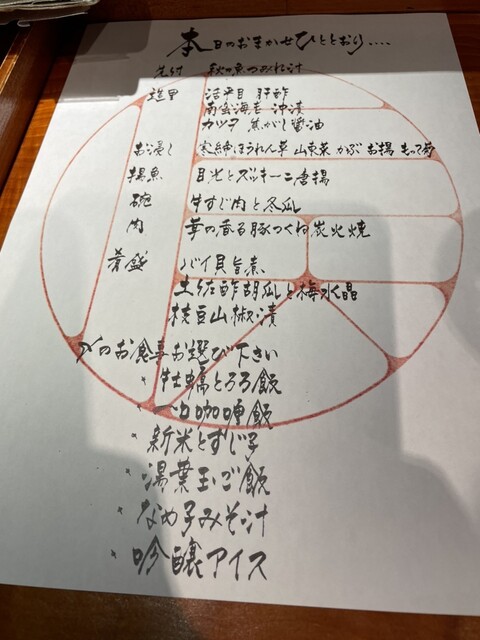 本日のおまかせひととおり....
先付 秋の魚つみれ汁
造里 活平目 肝酢
南蛮海老 沖漬
カツヲ 焦がし醤油
お浸し 寒締ほうれん草 山東菜 かぶ お揚 もって菊
揚魚 目光とズッキーニ唐揚
碗 牛すじ肉と冬瓜
肉 華の香る豚つくね炭火焼
肴盛 バイ貝旨煮
土佐酢胡瓜と梅水晶
枝豆山椒漬
〆のお食事お選び下さい
* 牡蠣とろろ飯
* 一口咖喱飯
* 新米とすじ子
* 湯葉玉ご飯
* なめ子みそ汁
* 吟醸アイス